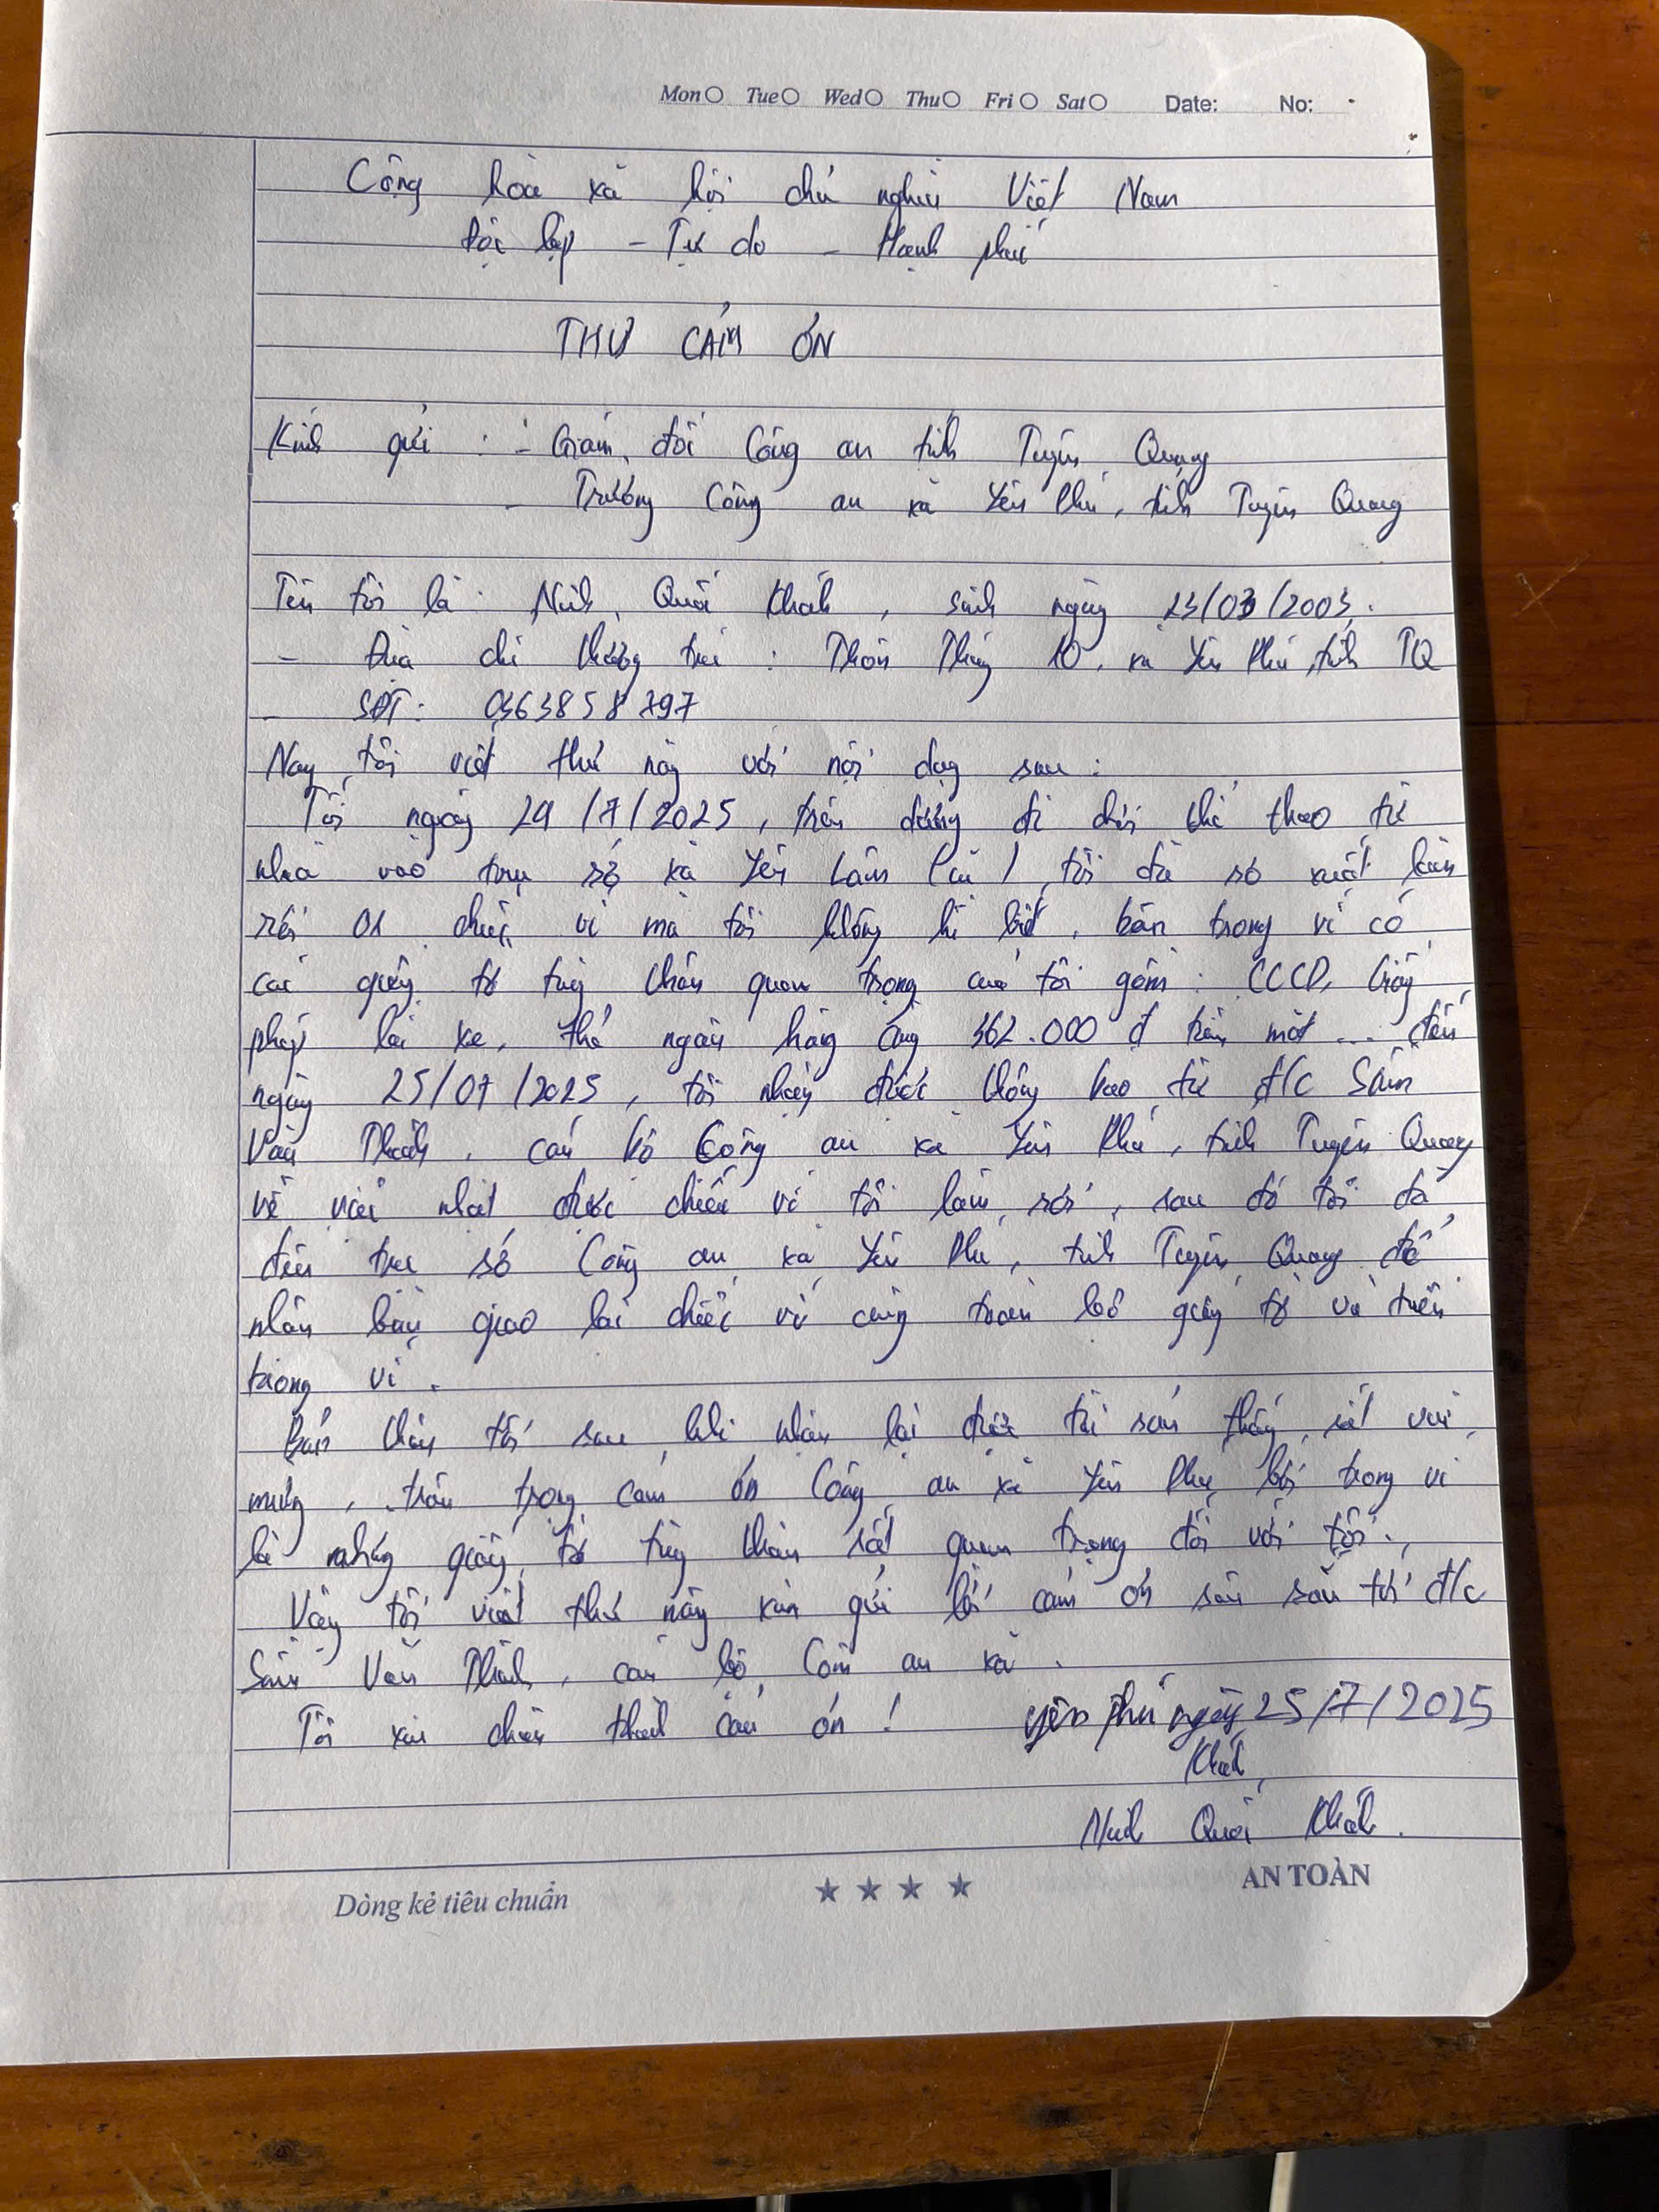 Mon Tue Wed Thu Fri Sat Date: No:
Cộng hòa xã hội chủ nghĩa Việt Nam
Độc lập - Tự do - Hạnh phúc
THƯ CẢM ƠN
Kính gửi : - Giám đốc Công an tỉnh Tuyên Quang
- Trưởng Công an xã Yên Phú, tỉnh Tuyên Quang
Tên tôi là: Ninh Quốc Khánh, sinh ngày 23/03/2003.
- Địa chỉ thường trú : Thôn Thống 10, xã Yên Phú, tỉnh TQ
- SĐT: 0363858797
Nay tôi viết thư này với nội dung sau :
Tối ngày 24/7/2025, trên đường đi chơi thể thao từ
nhà vào trụ sở xã Yên Lâm (cũ) tôi đã sơ xuất làm
rơi 01 chiếc ví mà tôi không hề biết, bên trong ví có
các giấy tờ tùy thân quan trọng của tôi gồm: CCCD, Giấy
phép lái xe, thẻ ngân hàng cùng 362.000 đ tiền mặt ... đến
ngày 25/07/2025, tôi nhận được thông báo từ đ/c Sầm
Văn Thành, cán bộ Công an xã Yên Phú, tỉnh Tuyên Quang
về việc nhặt được chiếc ví tôi làm rơi, sau đó tôi đã
đến trụ sở Công an xã Yên Phú, tỉnh Tuyên Quang để
nhận bàn giao lại chiếc ví cùng toàn bộ giấy tờ và tiền
trong ví.
Bản thân tôi sau khi nhận lại được tài sản thấy rất vui
mừng, trân trọng cảm ơn Công an xã Yên Phú bởi trong ví
là những giấy tờ tùy thân rất quan trọng đối với tôi.
Vậy tôi viết thư này xin gửi lời cảm ơn sâu sắc tới đ/c
Sầm Văn Thành, cán bộ Công an xã.
Tôi xin chân thành cảm ơn ! Yên Phú ngày 25/7/2025
Khánh
Ninh Quốc Khánh.
Dòng kẻ tiêu chuẩn
AN TOÀN